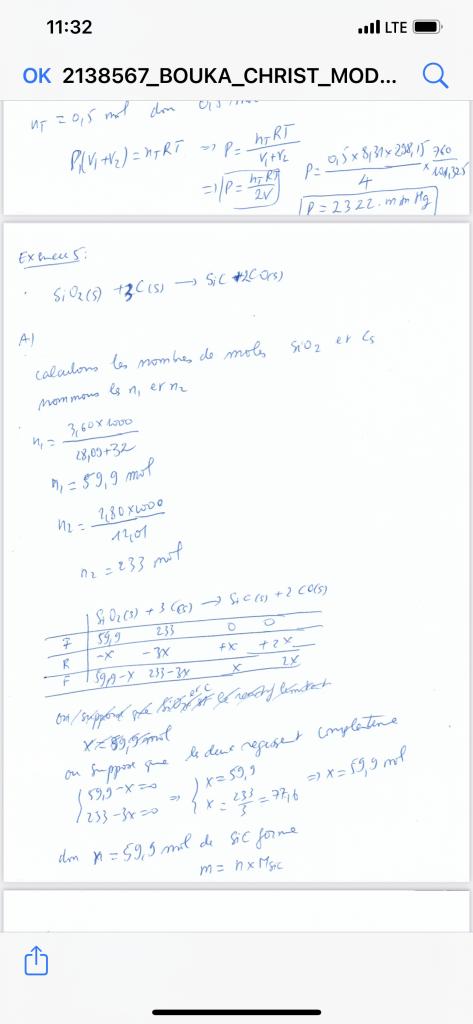 11:32 LTE
OK 2138567_BOUKA_CHRIST_MOD...
nT = 0,5 mol don
P(V1+V2) = nTRT => P = nTRT / V1+V2
=> P = nTRT / 2V
P = 0,5 x 8,31 x 298,15 / 4 x 760 / 101,325
P = 2322. mm Hg
Exercice 5:
SiO2(s) + 3C(s) → SiC + 2CO(s)
A)
calculons les nombres de moles SiO2 et Cs
nommons les n1 et n2
n1 = 3,60 x 1000 / 28,09+32
n1 = 59,9 mol
n2 = 2,80 x 1000 / 12,01
n2 = 233 mol
SiO2(s) + 3C(s) → SiC(s) + 2CO(s)
I 59,9 233 0 0
R -x -3x +x +2x
F 59,9-x 233-3x x 2x
x = 59,9 mol
on suppose que les deux reagissent
59,9-x=0 => x = 59,9
233-3x=0 x = 233 / 3 = 77,6 => x = 59,9 mol
don n = 59,9 mol de SiC forme
m = n x MSiC